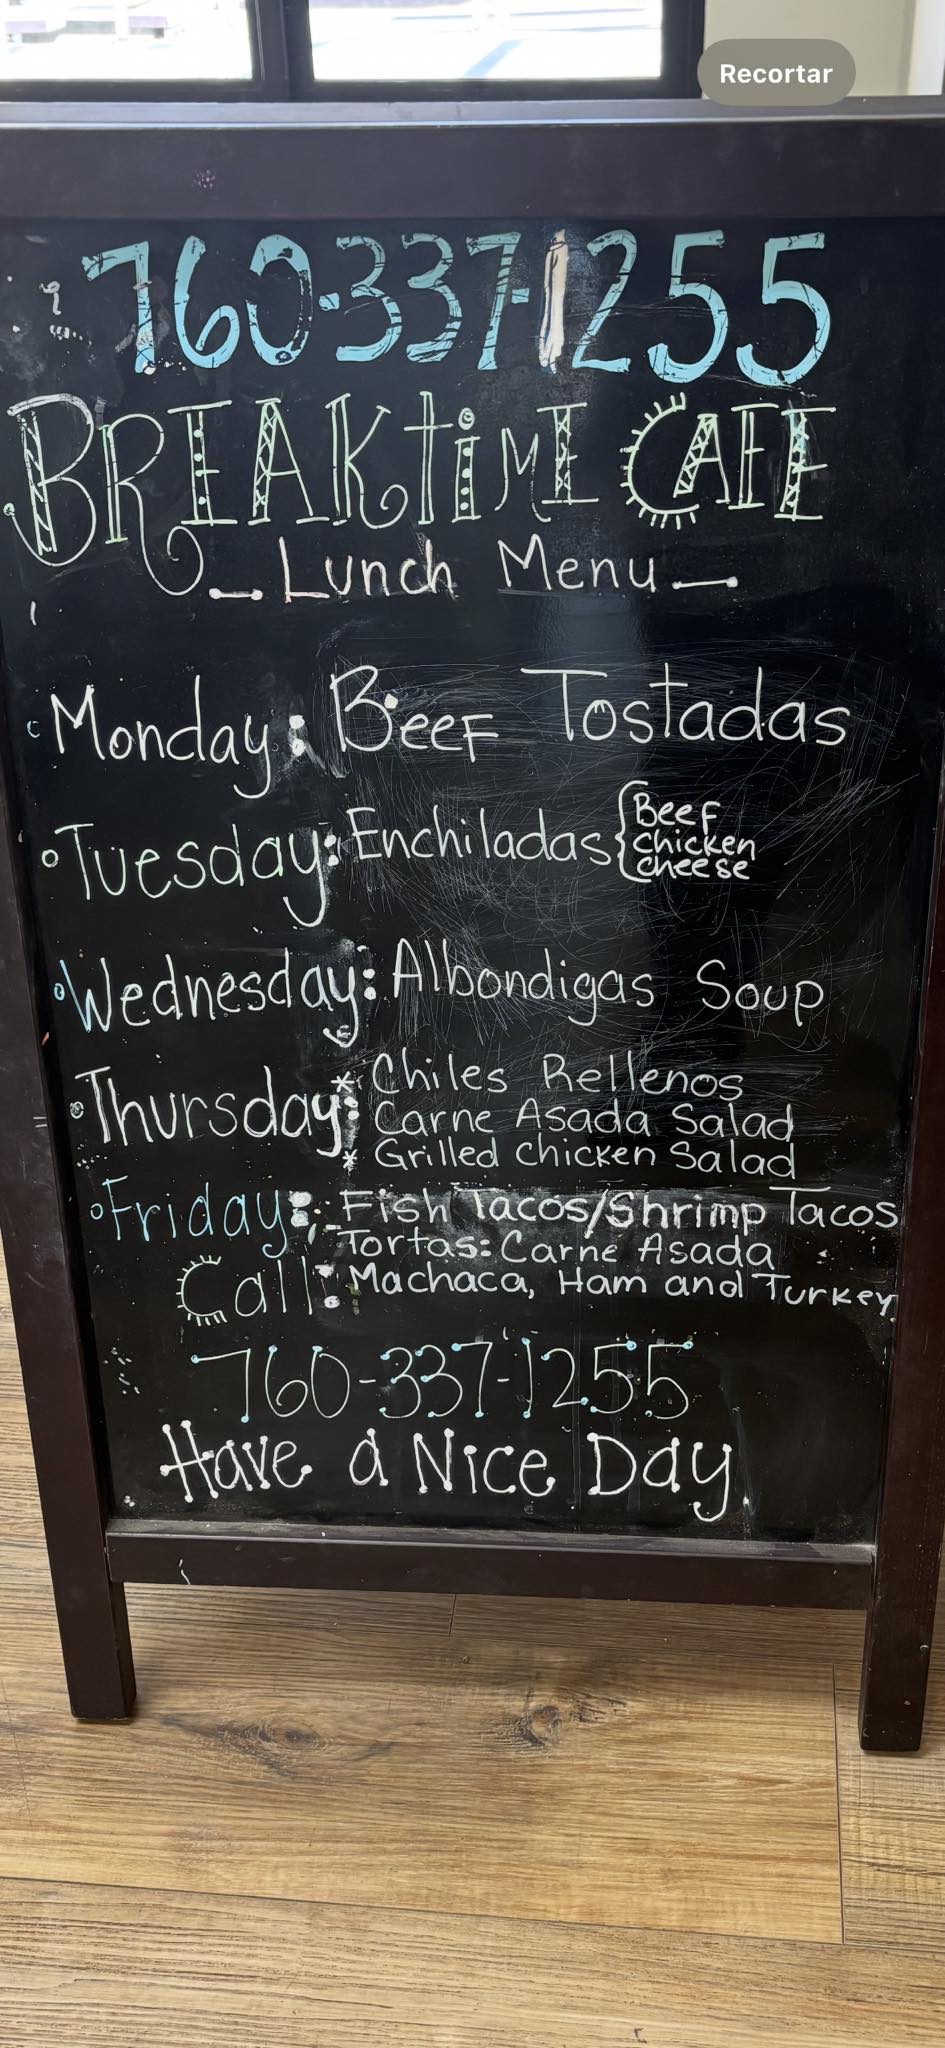 Recortar
760-337-1255
BREAKtiME CAFE
Lunch Menu
Monday: Beef Tostadas
Tuesday: Enchiladas { Beef
chicken
cheese
Wednesday: Albondigas Soup
Thursday: * Chiles Rellenos
Carne Asada Salad
* Grilled Chicken Salad
Friday: Fish Tacos/Shrimp Tacos
Tortas: Carne Asada
Call: Machaca, Ham and Turkey
760-337-1255
Have a Nice Day